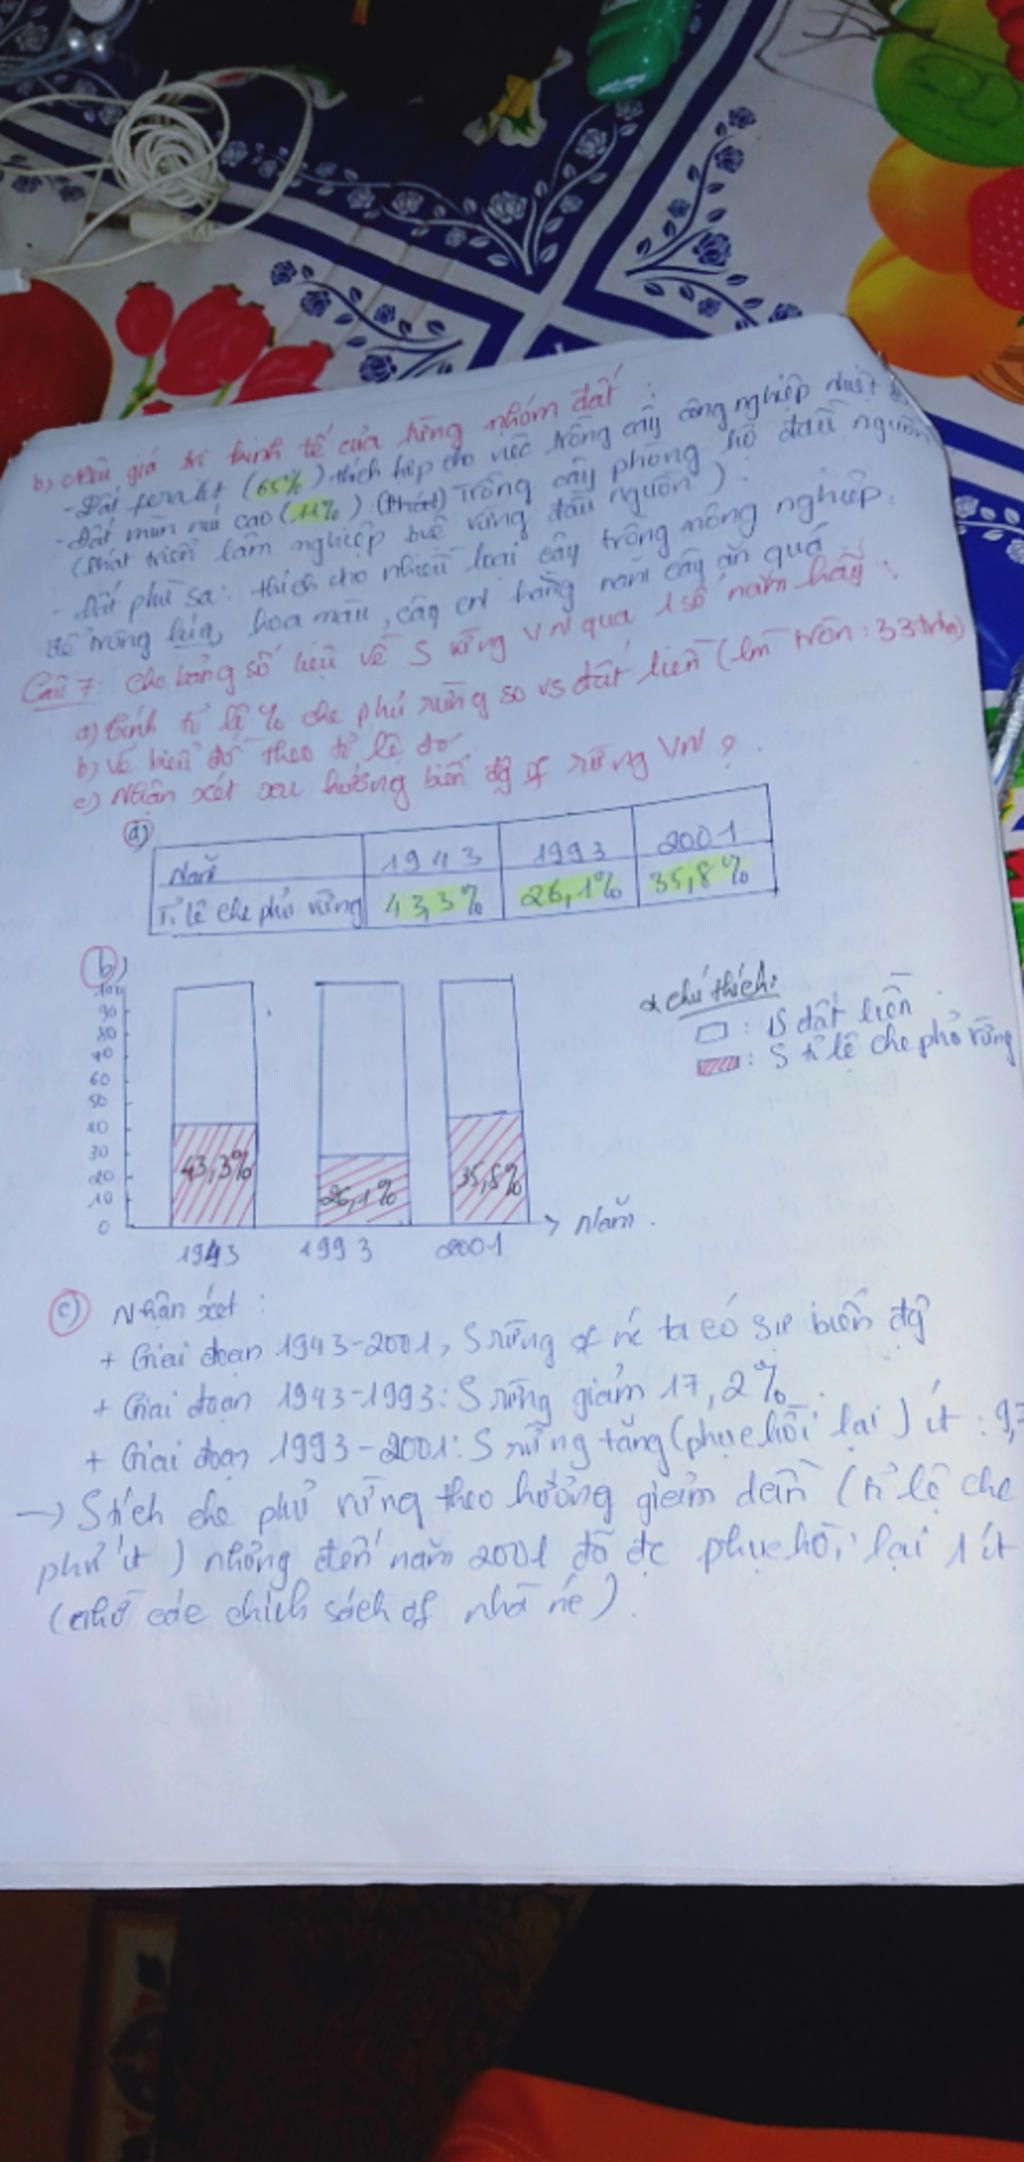 b) Nêu giá trị kinh tế của từng nhóm đất :
- Đất feralit (65%) thích hợp cho việc trồng cây công nghiệp nhiệt
- Đất mùn núi cao (11%) (Phát) Trồng cây phòng hộ đầu nguồn
(Phát triển lâm nghiệp bvệ rừng đầu nguồn).
- Đất phù sa: thích cho nhiều loại cây trồng nông nghiệp.
để trồng lúa, hoa màu, cây CN hằng năm cây ăn quả
Câu 7: Cho bảng số liệu về S rừng VN qua 1 số năm hãy :
a) Tính tỉ lệ % che phủ rừng so vs đất liền (lm tròn : 33 trha)
b) Vẽ biểu đồ theo tỉ lệ đó
c) Nhận xét xu hướng biến độg of rừng VN ?
a)
Năm 1943 1993 2001
Tỉ lệ che phủ rừng 43,3% 26,1% 35,8%
b)
100
90
80
70
60
50
40
30
20
10
0
43,3% 26,1% 35,8%
1943 1993 2001 Năm
* chú thích:
: S đất liền
: S tỉ lệ che phủ rừng
c) Nhận xét :
+ Giai đoạn 1943-2001, S rừng of nc ta có sự biến độg
+ Giai đoạn 1943-1993: S rừng giảm 17,2%
+ Giai đoạn 1993-2001: S rừng tăng (phục hồi lại) ít : 9,7
→ S tích che phủ rừng theo hướng giảm dần (tỉ lệ che
phủ ít) nhưng đến năm 2001 đã đc phục hồi lại 1 ít
(nhờ các chích sách of nhà nc).